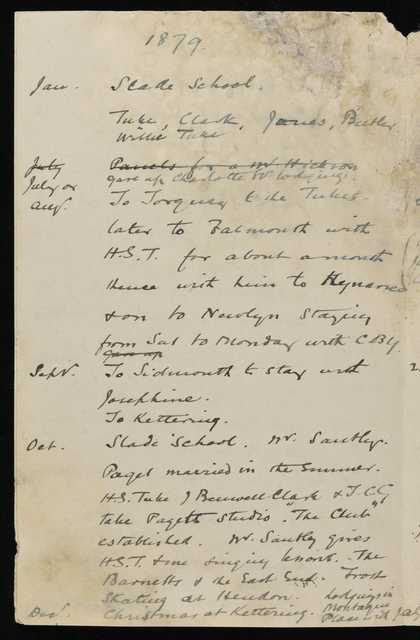 1879.
Jan. Slade School.
Tuke, Clark, Janes, Butler
Willie Tuke
July Panels for a Mr Hickson
gave up Charlotte St lodgings
July or To Torquay to the Tukes.
Aug.
later to Falmouth with
H.S.T. for about a month
thence with him to Kynance
& on to Newlyn staying
from Sat to Monday with CBY
gave up
Sept. To Sidmouth to stay with
Josephine.
To Kettering.
Oct. Slade School. Mr. Santley.
Paget married in the Summer.
H.S. Tuke J Benwell Clark & T.C.G.
take Pagets Studio. "The Club"
established. Mr. Santley gives
H.S.T. & me singing lessons. The
Barnetts & the East End. Frost
Skating at Hendon. Lodgings in
Dec. Christmas at Kettering. Montague
Place with